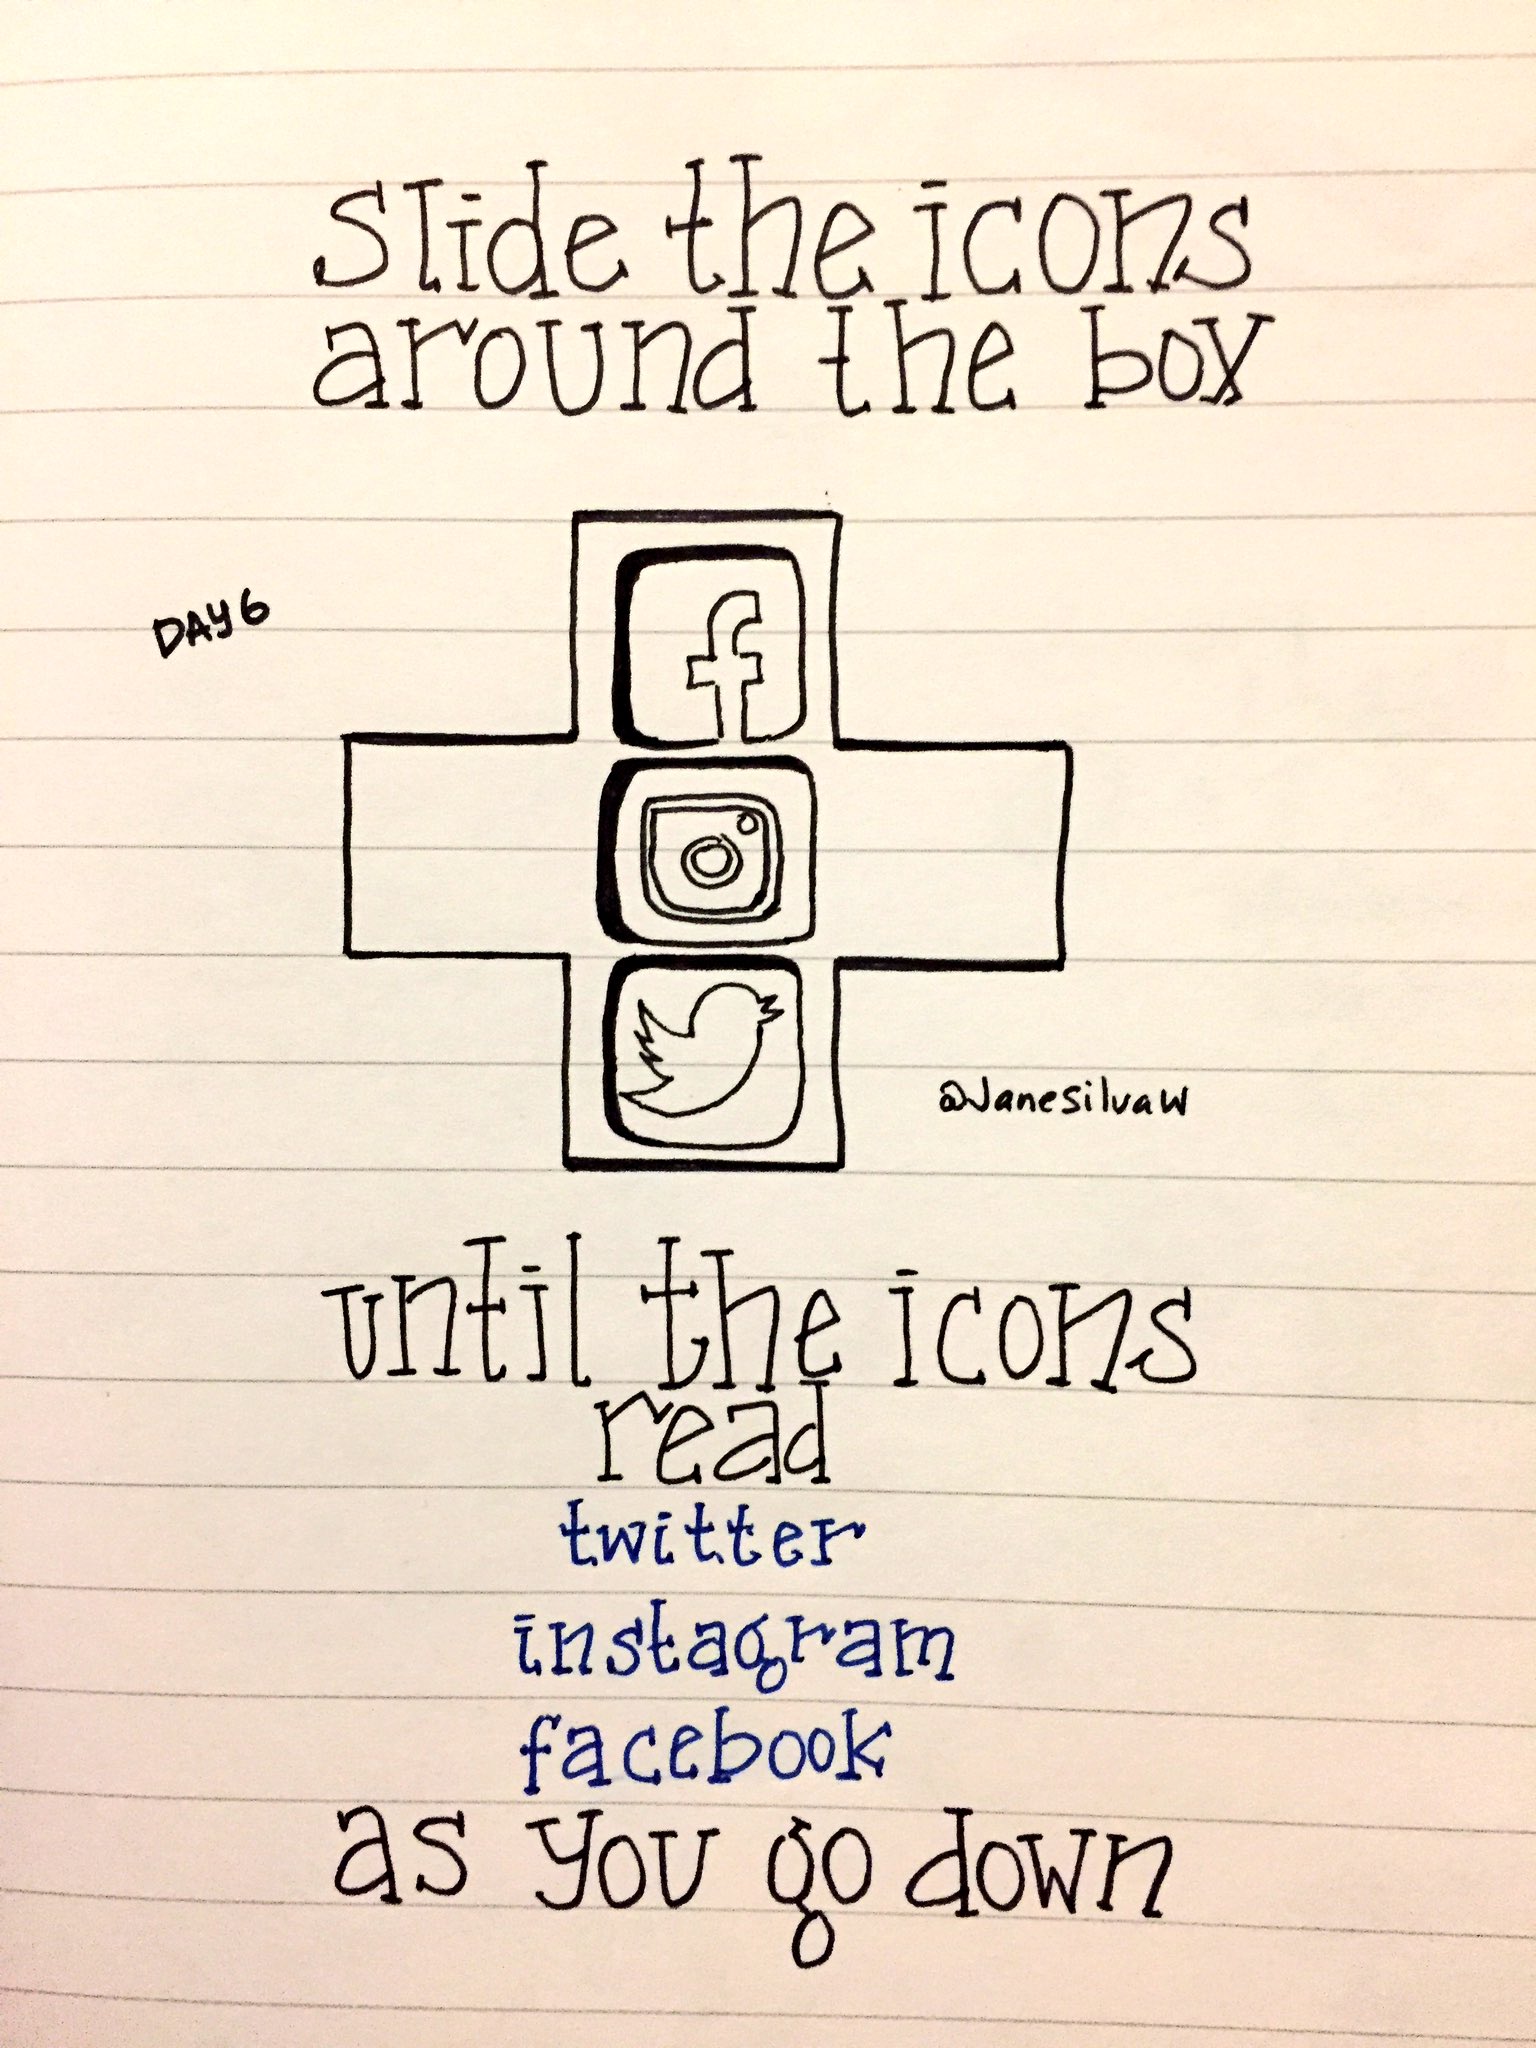 slide the icons
around the box
DAY 6
f
@Janesilvaw
until the icons
read
twitter
instagram
facebook
as you go down